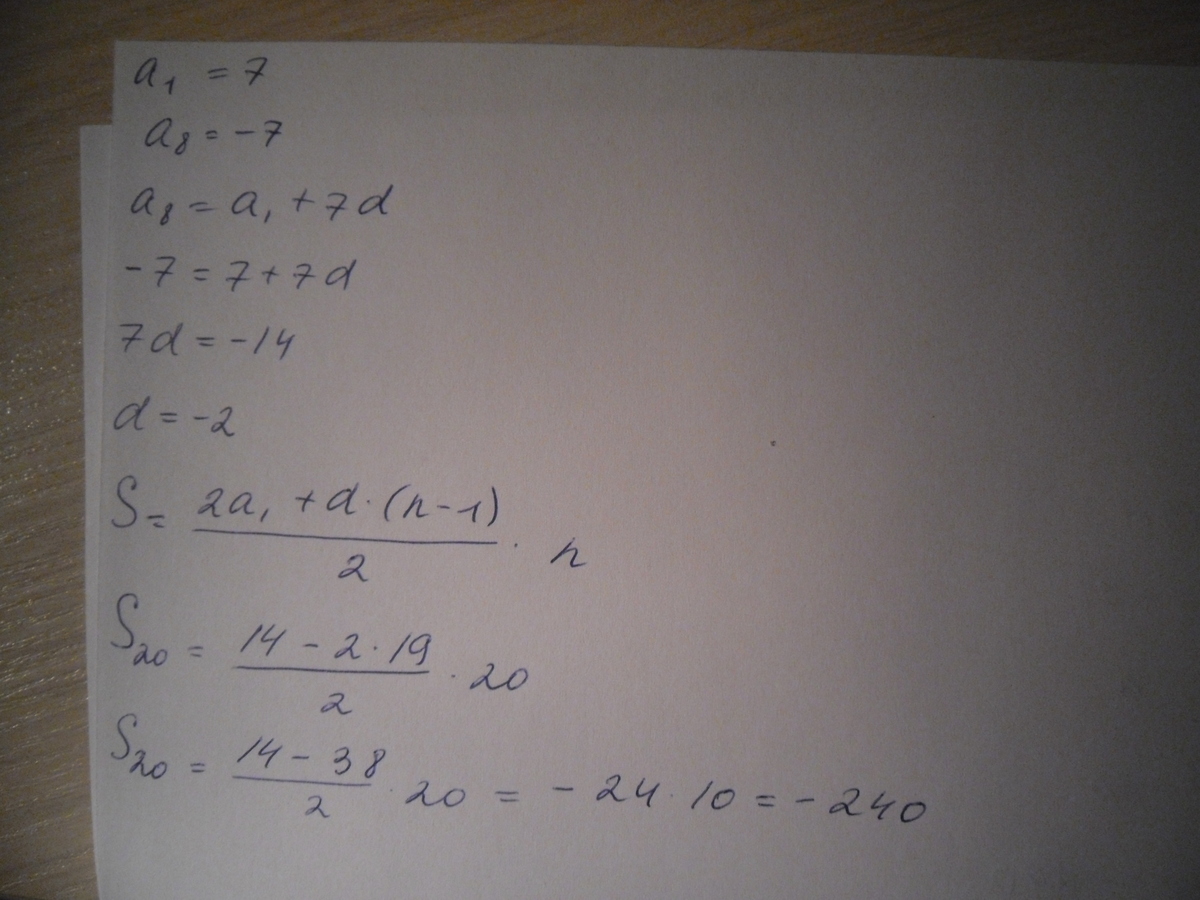 a₁ = 7
a₈ = -7
a₈ = a₁ + 7d
-7 = 7 + 7d
7d = -14
d = -2
S = (2a₁ + d · (n - 1)) / 2 · n
S₂₀ = (14 - 2 · 19) / 2 · 20
S₂₀ = (14 - 38) / 2 · 20 = -24 · 10 = -240